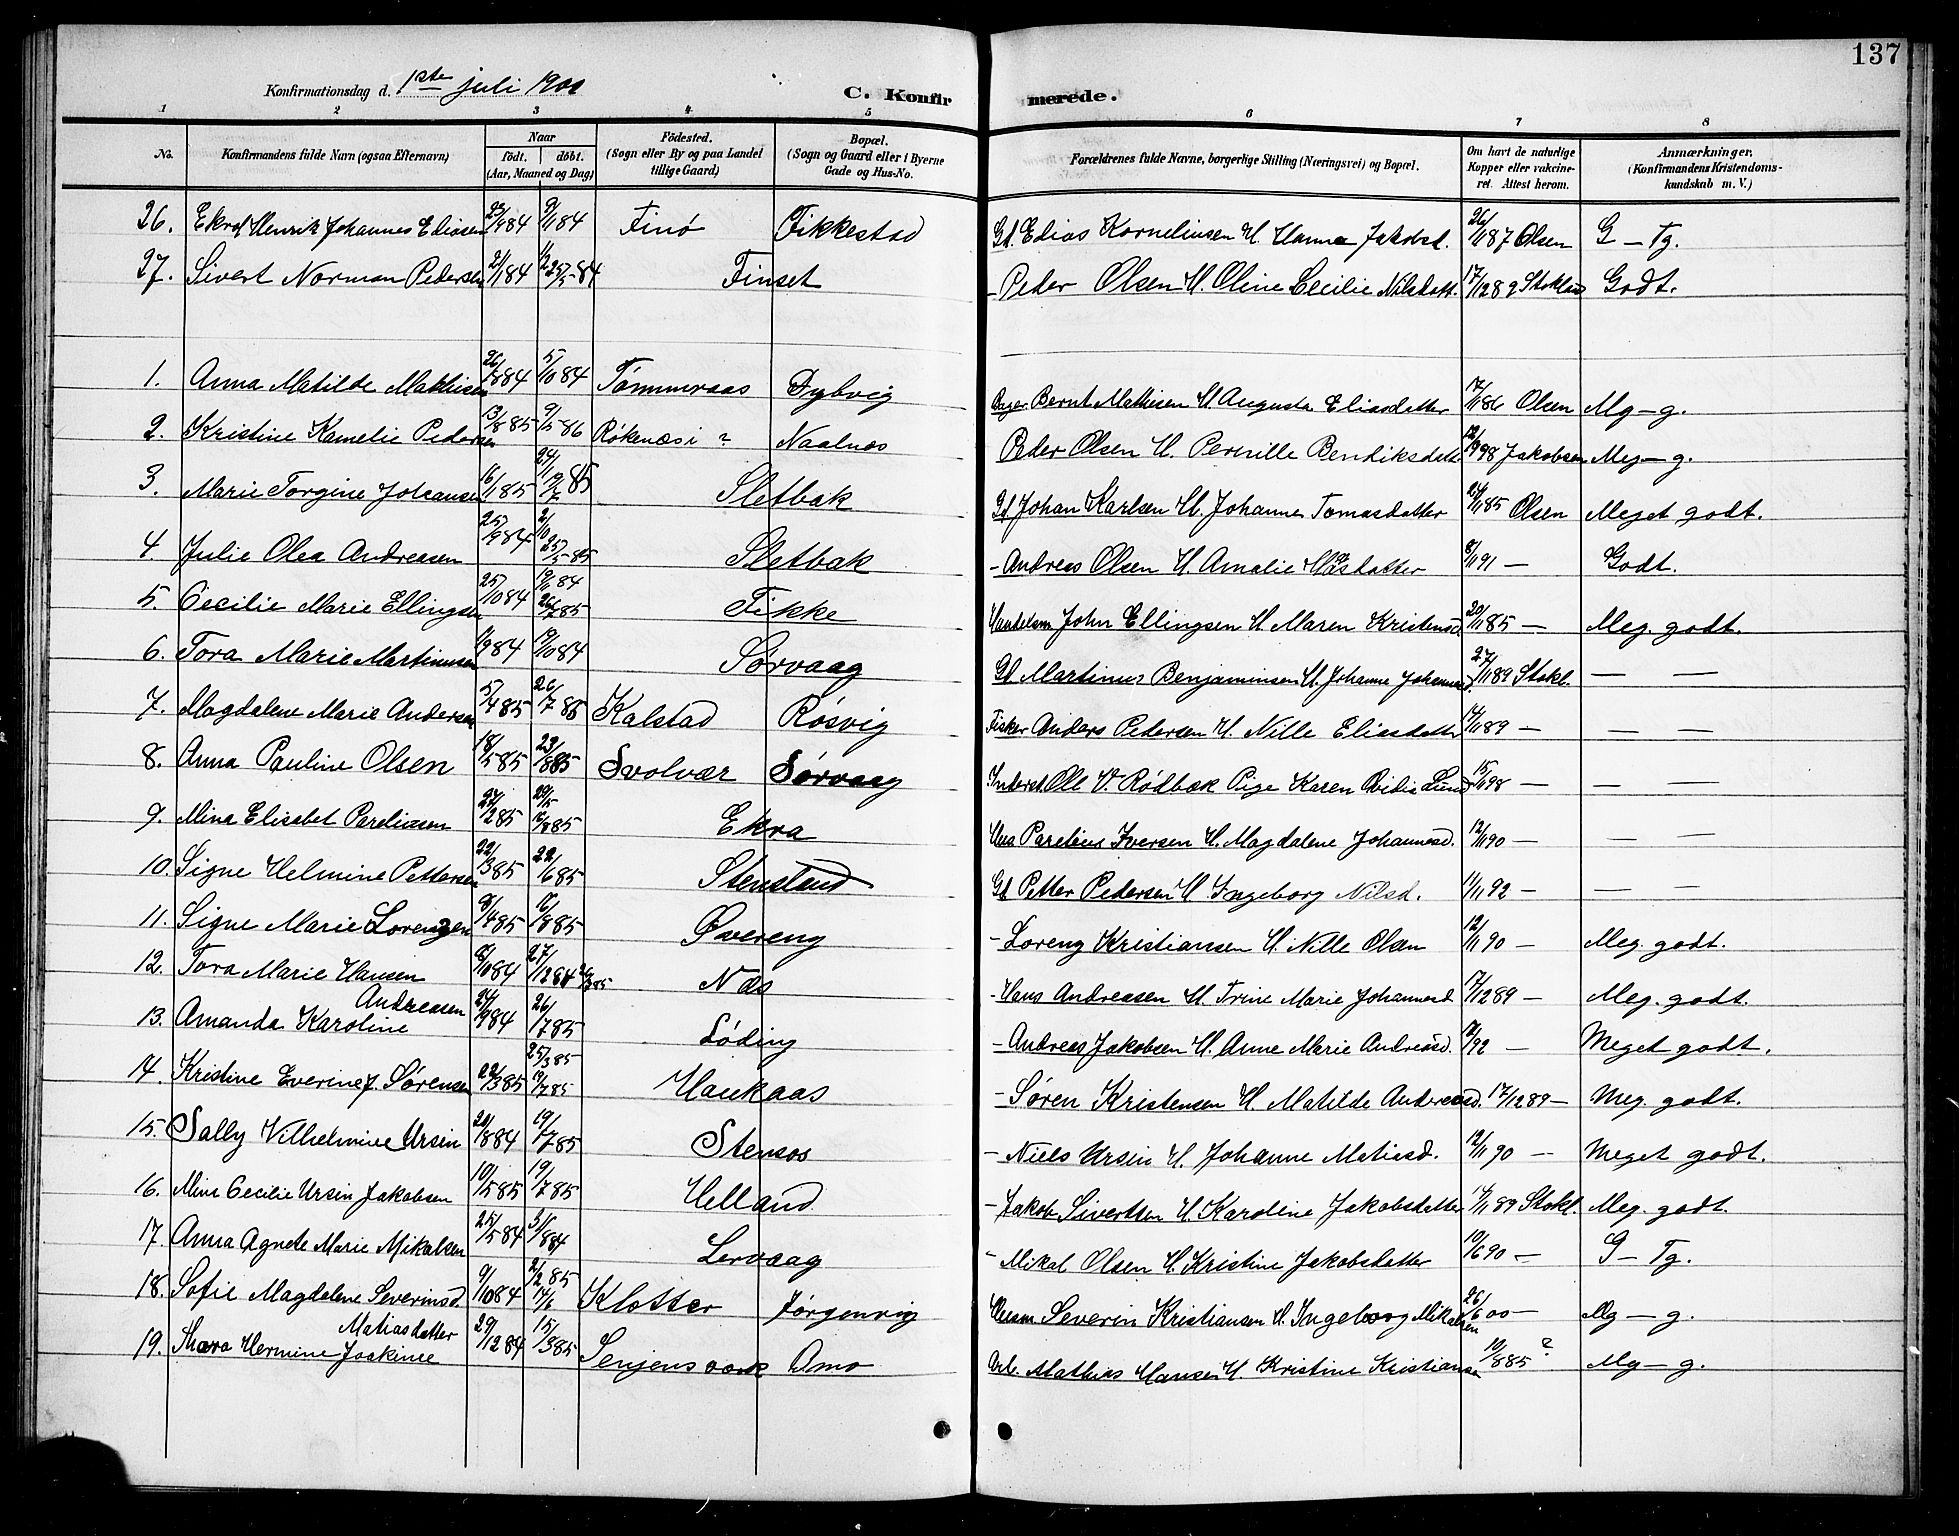 137
Konfirmationsdag d. 1ste juli 1900 C. Konfirmerede.
1 2 3 4 5 6 7 8
No. Konfirmandens fulde Navn (ogsaa Efternavn) Naar født. døbt. (Aar, Maaned og Dag) Fødested. (Sogn eller By og paa Landet tillige Gaard) Bopæl. (Sogn og Gaard eller i Byerne Gade og Hus-No. Forældrenes fulde Navne, borgerlige Stilling (Næringsvei) og Bopæl. Om havt de naturlige Kopper eller vakcineret. Attest herom. Anmærkninger. (Konfirmandens Kristendomskundskab m. V.)
26. Henrik Johannes Eliasen Finø Fikkestad Gd. Edias Korneliusen H. Hanna Jakobsd. 26/1187 Olsen G - Tg.
27. Sivert Norman Pedersen 21/184 Finset - Peder Olsen H. Oline Cecilie Nilsdatt. 17/1289 Godt.
1. Anna Matilde Mathisen 26/884 5/1084 Tømmeraas Dybvig Bernt Mathisen H. Augusta Eliasdatter 17/1186 Olsen Mg - g.
2. Kristine Kamelie Pedersen 13/885 9/586 Røkenæs i ? Naalnæs Peder Olsen H. Pernille Bendiksdatt. 12/998 Jakobsen Mg - g.
3. Marie Torgine Johansen 16/185 Sletbak Gd. Johan Karlsen H. Johanne Tomasdatter 24/1185 Olsen Meget godt.
4. Julie Olea Andreasen 25/984 25/585 Sletbak - Andreas Olsen H. Amalie datter 8/1191 - Godt.
5. Cecilie Marie Ellingsen 25/1084 26/785 Fikke Handelsm John Ellingsen H. Maren Kristensd. 20/1185 - Meg. godt.
6. Tora Marie Martinusen 19/1084 Sørvaag Gd Martinus Benjaminsen H. Johanne Johannesd. 27/1189 Stokl. - -
7. Magdalene Marie Andersen 5/485 26/785 Kalstad Røsvig Fisker Anders Pedersen H. Nille Eliasdatter 17/1189 - - -
8. Anna Pauline Olsen 18/585 23/885 Svolvær Sørvaag Inderst. Ole V. Rødbæk Pige Karen Lund 15/1198 - - -
9. Mina Elisabet Pareliusen 27/285 Ekra Hus Parelius Iversen H. Magdalene Johannesd. 12/1190 - - -
10. Signe Helmine Pettersen 22/385 22/685 Stensland Gd Petter Pedersen H. Ingeborg Nilsd. 11/1192 - - -
11. Signe Marie Lorenzen 8/485 16/885 Øvereng - Loreng Kristiansen H. Nille Olsen 12/1190 - Meg. godt.
12. Tora Marie Hansen 8/1084 27/1284 Næs - Hans Andreasen H. Trine Marie Johannesd. 17/1289 - Meg. godt.
13. Amanda Karoline Andreasen 24/984 26/785 Løding - Andreas Jakobsen H. Anne Marie Andreasd. - Meget godt.
14. Kristine Everine J. Sørensen 22/385 25/385 19/785 Haukaas - Søren Kristensen H. Matilde Andreasd. 17/1289 - Meg. godt.
15. Sally Vilhelmine Ursin 20/884 19/785 Stensos - Niels Ursin H. Johanne Matiasd. 12/1190 - Meget godt.
16. Mina Cecilie Ursin Jakobsen 10/585 19/785 Helland - Jakob Sivertsen H. Karoline Jakobsdatter 14/1189 Stokl. Meg. godt.
17. Anna Agnete Marie Mikalsen 25/584 31/884 Lervaag - Mikal Olsen H. Kristine Jakobsdatter 10/690 - G - Tg.
18. Sofie Magdalene Severinsd. 9/1084 2/285 14/6 Klotter Jørgenvig Severin Kristiansen H. Ingeborg Mikalsen 26/600 - Mg - g.
19. Hermine Joakime Matiasdatter 29/1284 15/385 Amo Arb. Mathias Hansen H. Kristine Kristiansen 10/885 ? Mg - g.